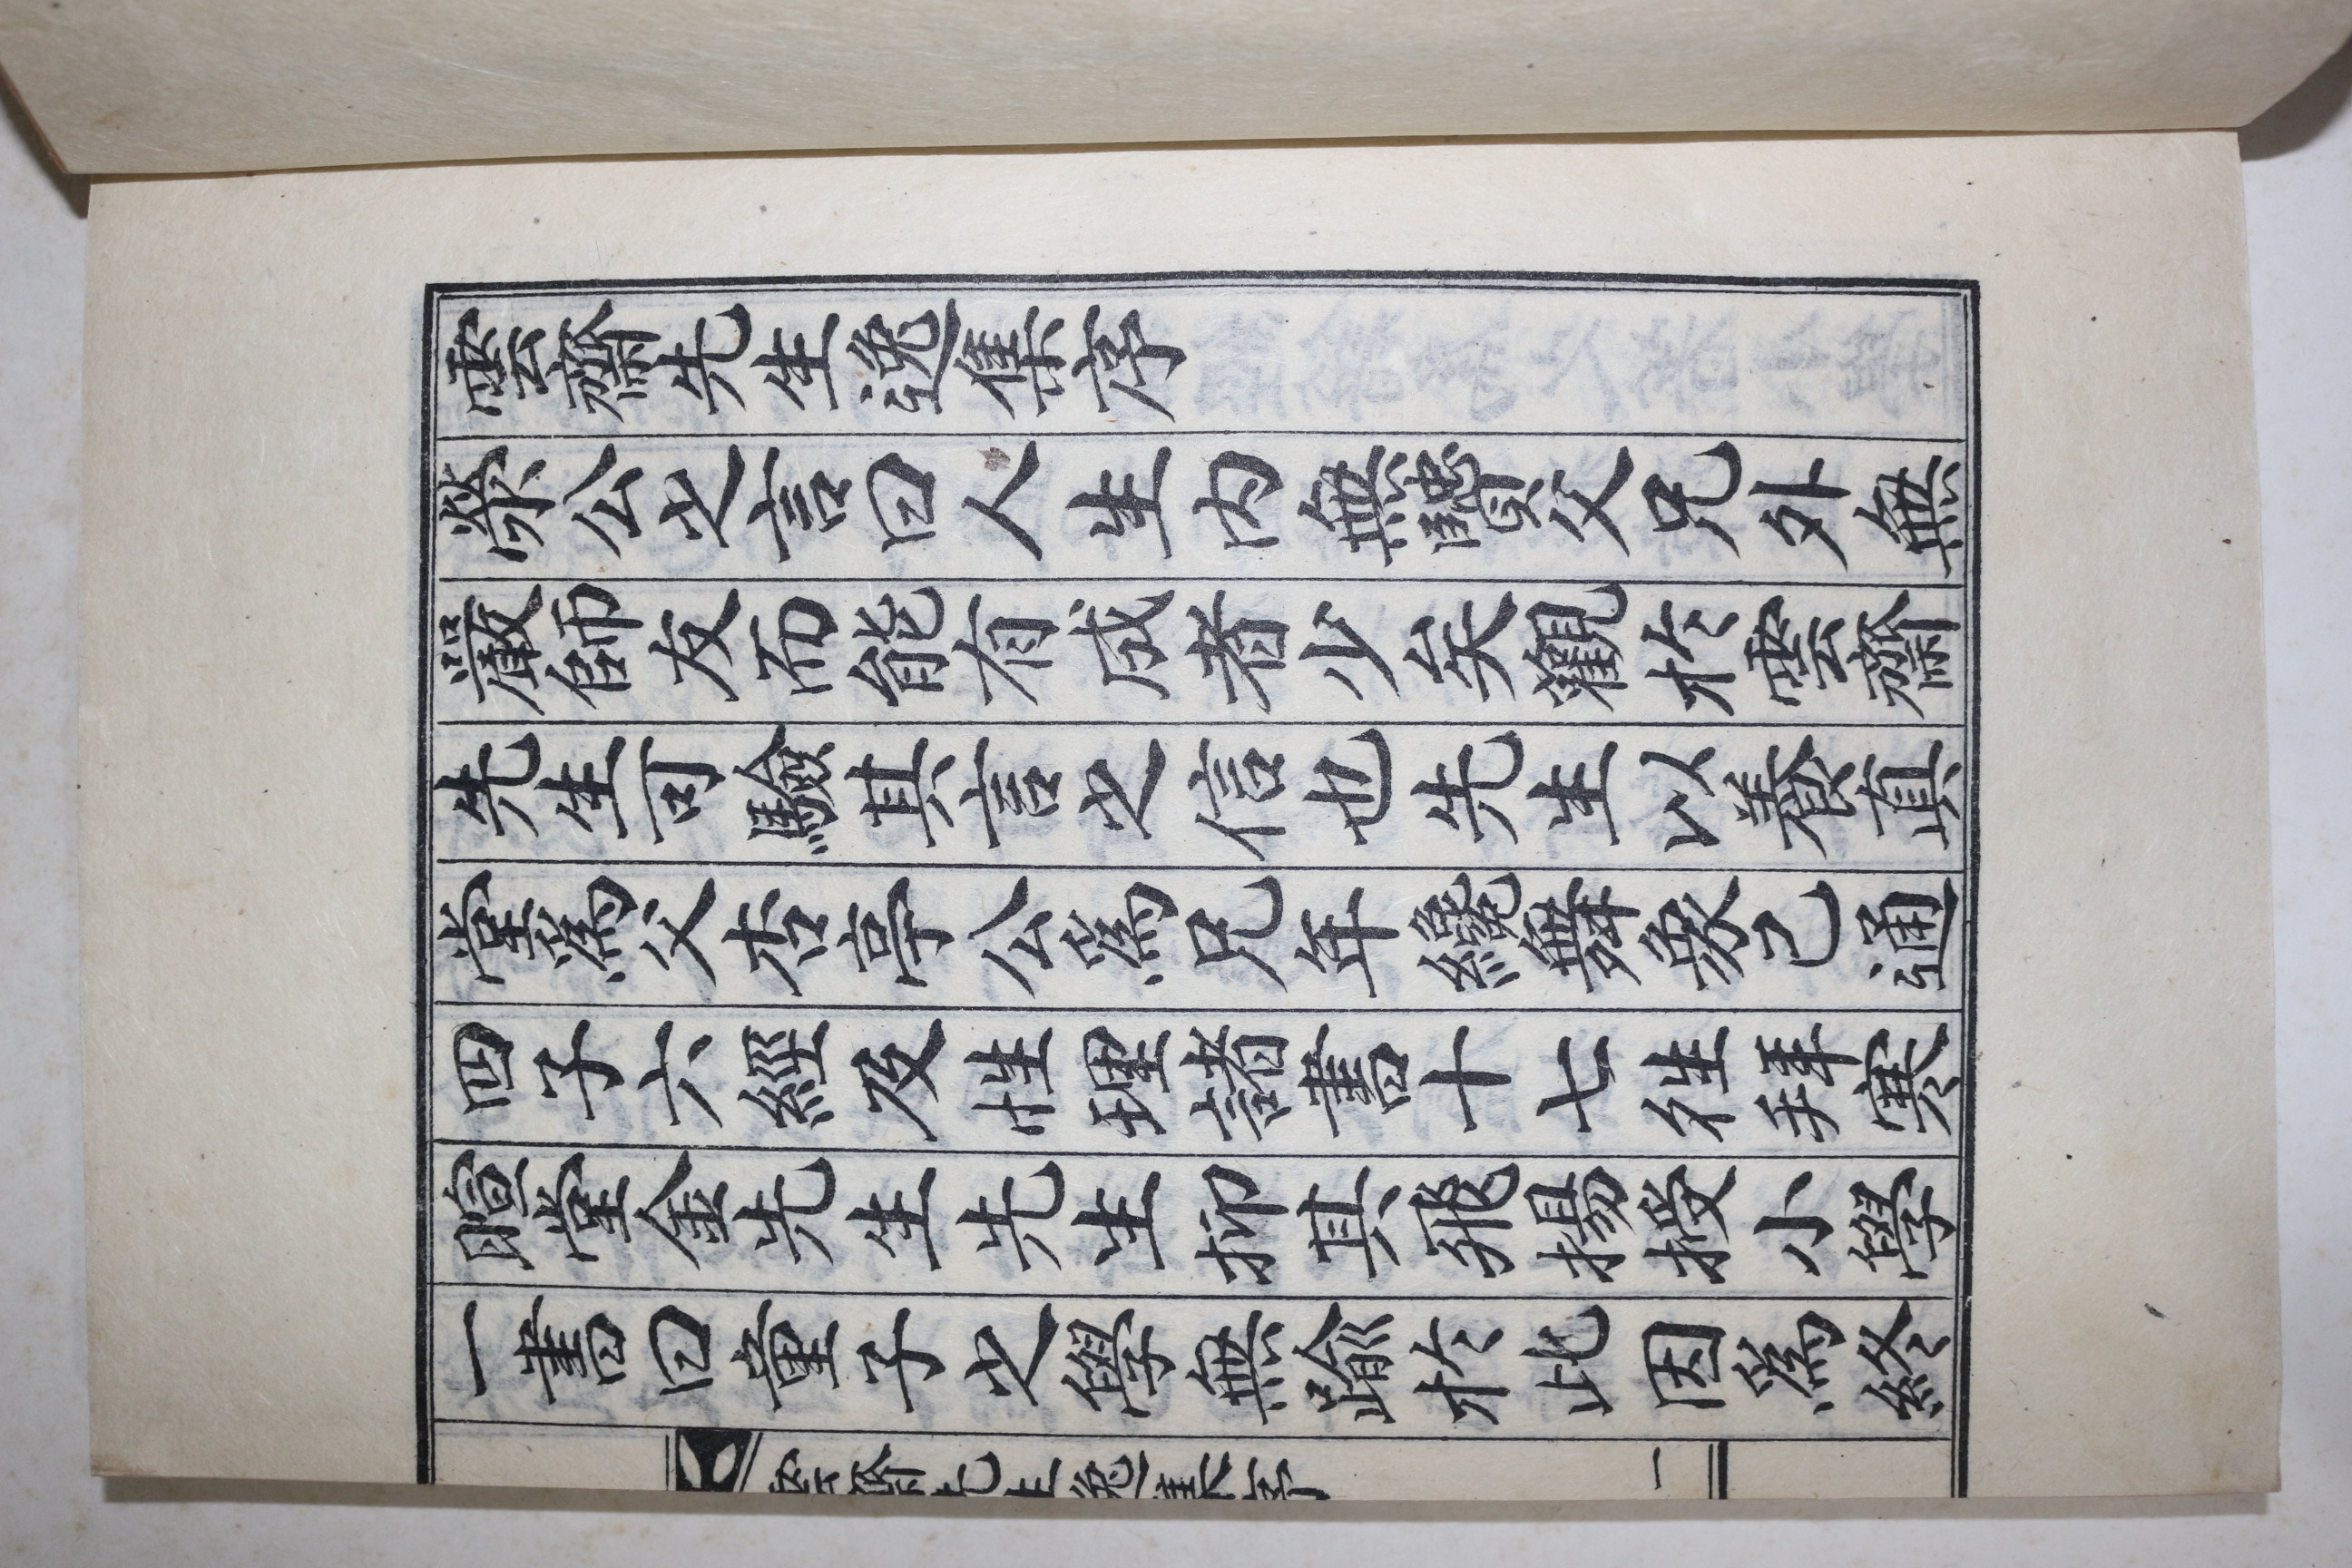 雲齋先生逸集序
榮公之言曰人生內無賢父兄外無
嚴師友而能有成者少矣觀於雲齋
先生可驗其言之信也先生以養眞
堂爲父杏亭公爲兄年纔舞象已通
四子六經及性理諸書十七往拜寒
暄堂金先生先生抑其飛揚授小學
一書曰童子之學無踰於此因爲終
雲齋先生逸集序 一